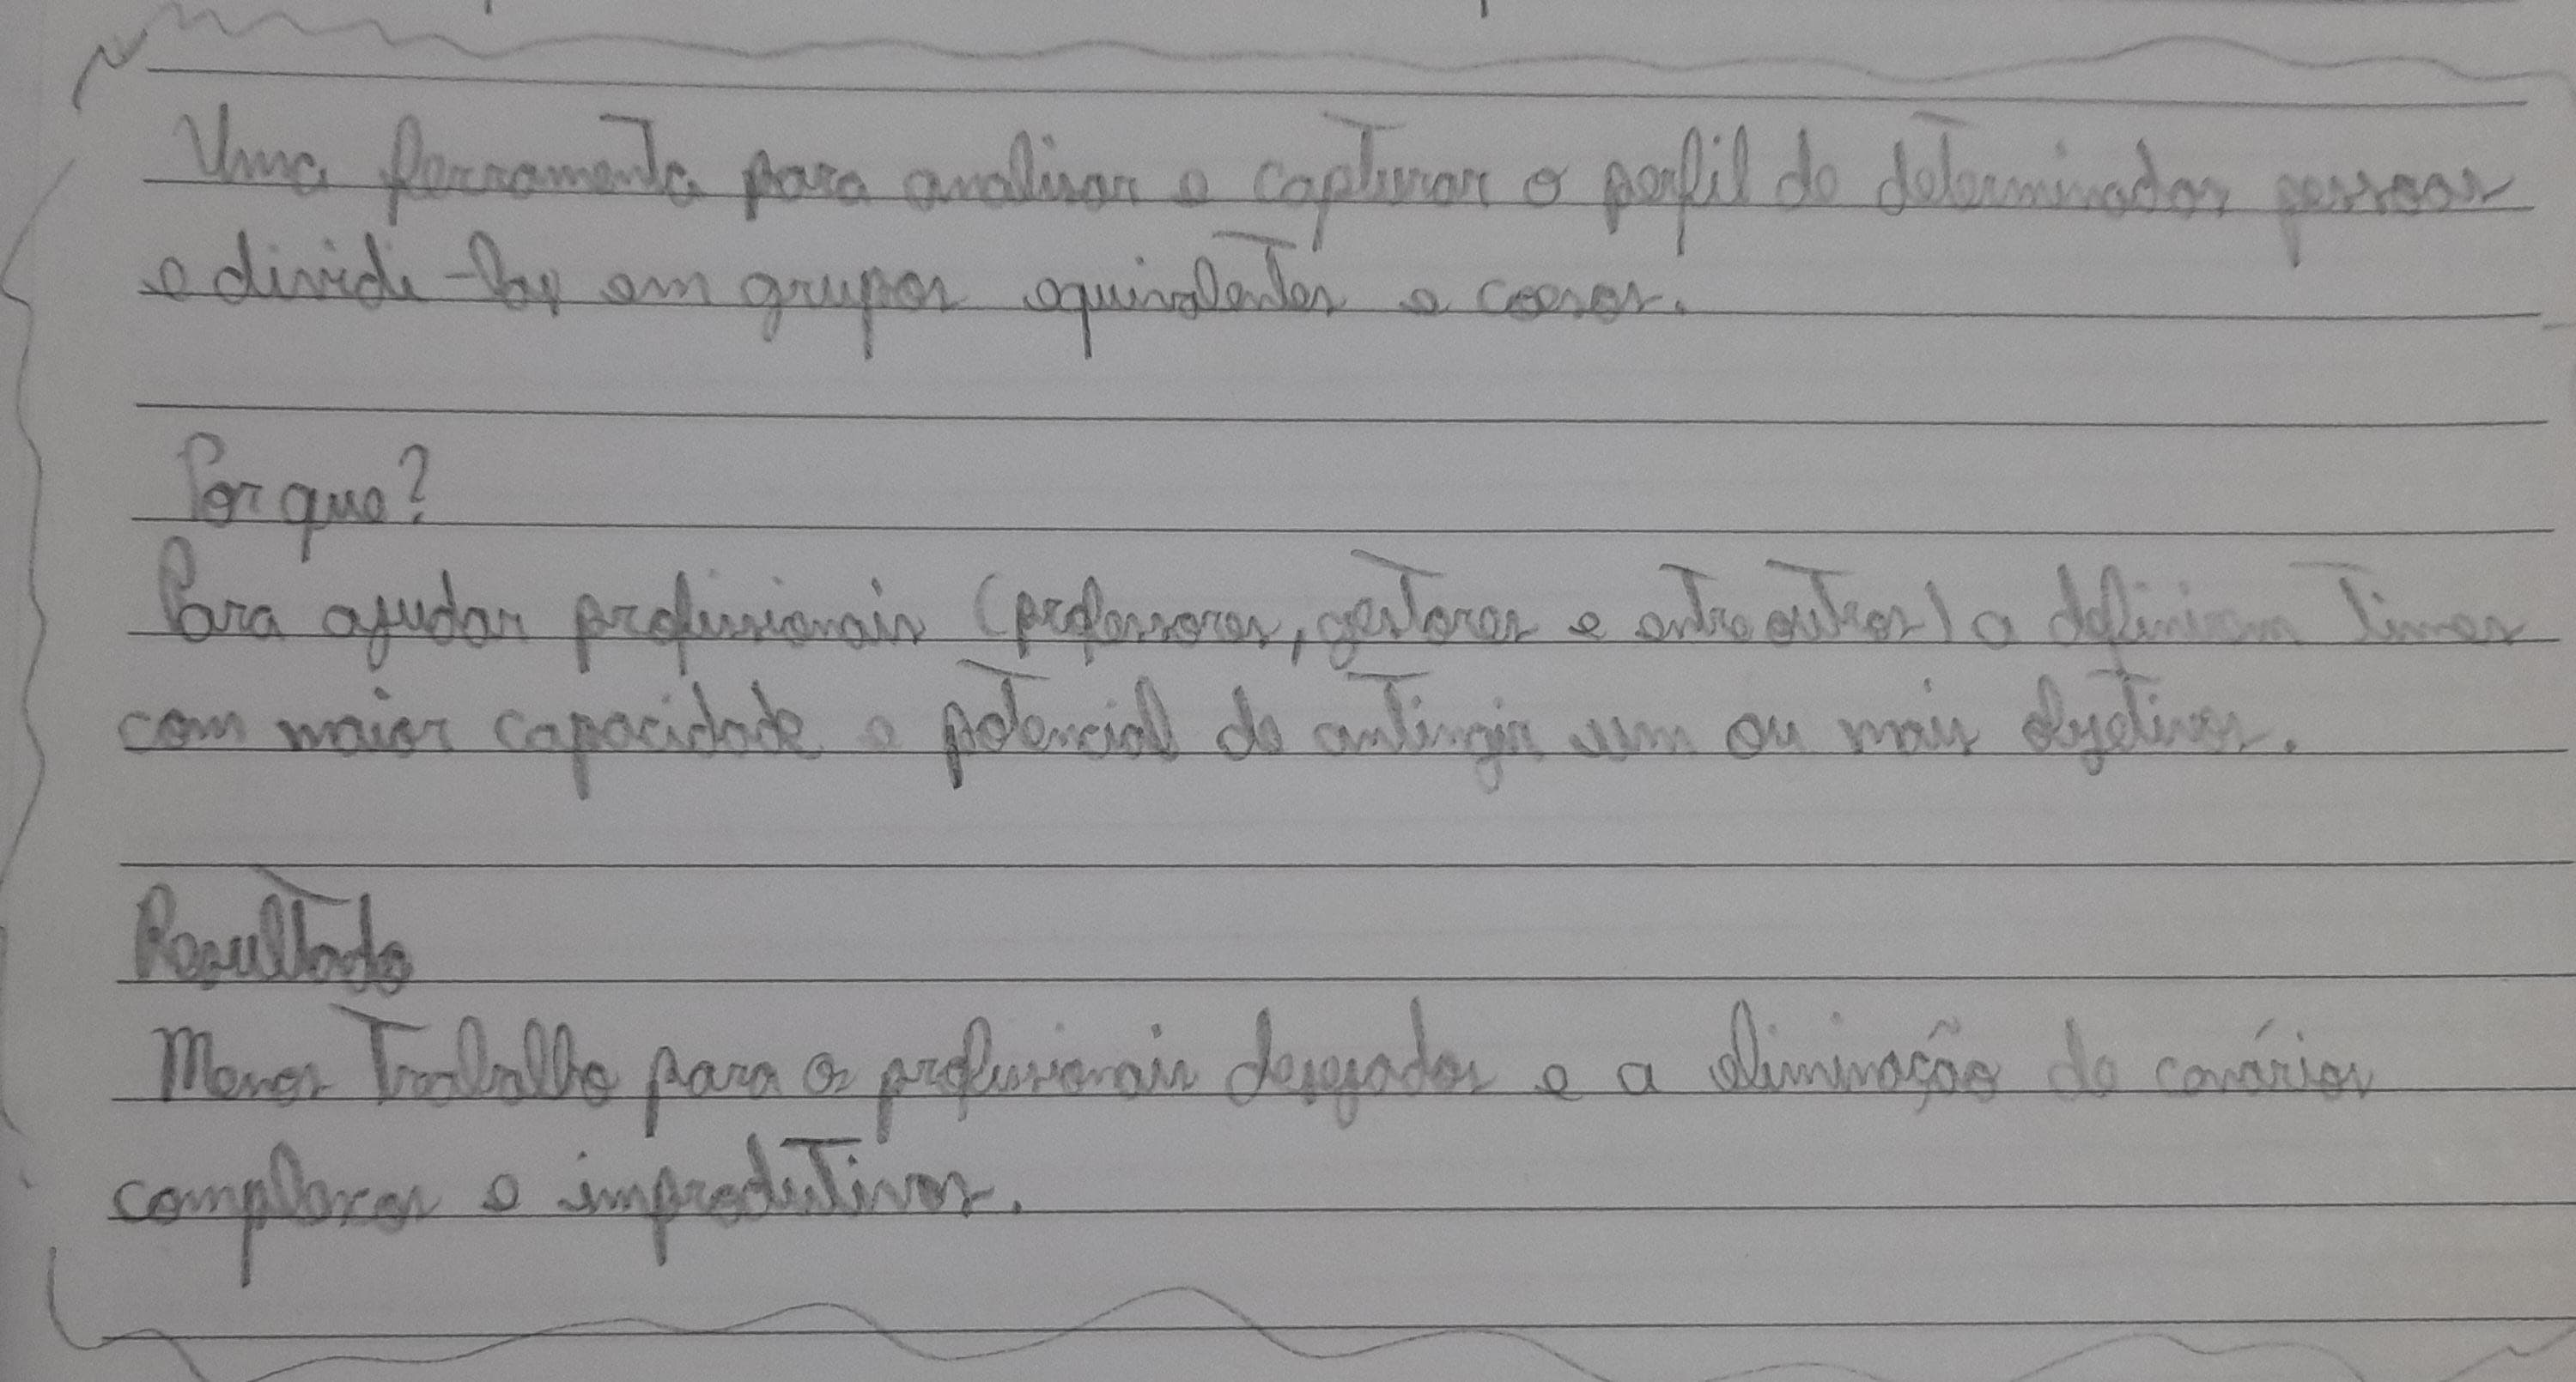 Uma ferramenta para analisar e capturar o perfil de determinadas pessoas
e dividi-las em grupos equivalentes e coesos.
Por que?
Para ajudar profissionais (professores, gestores e entre outros) a definirem times
com maior capacidade e potencial de antingir um ou mais objetivos.
Resultado
Menos Trabalho para os profissionais desejados e a eliminação de cenários
complexos e improdutivos.